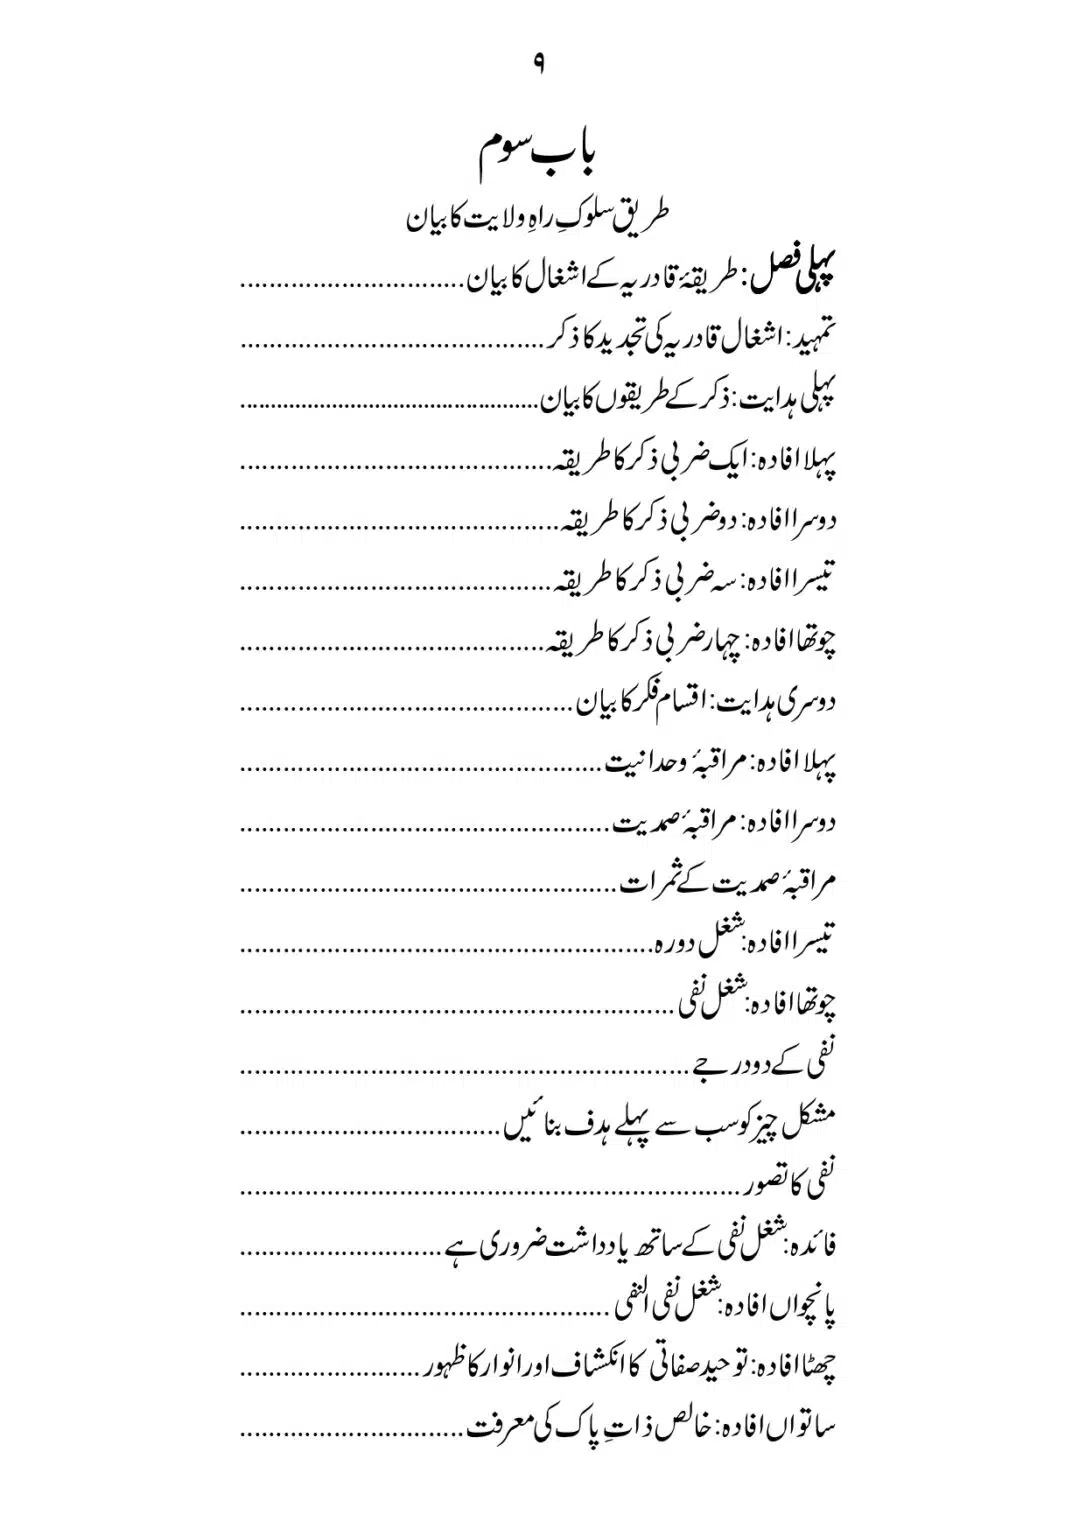 ۹
باب سوم
طریق سلوکِ راہِ ولایت کا بیان
پہلی فصل: طریقۂ قادریہ کے اشغال کا بیان...............................
تمہید: اشغال قادریہ کی تجدید کا ذکر..........................................
پہلی ہدایت: ذکر کے طریقوں کا بیان..............................................
پہلا افادہ: ایک ضربی ذکر کا طریقہ...........................................
دوسرا افادہ: دو ضربی ذکر کا طریقہ............................................
تیسرا افادہ: سہ ضربی ذکر کا طریقہ...........................................
چوتھا افادہ: چہار ضربی ذکر کا طریقہ..........................................
دوسری ہدایت: اقسام فکر کا بیان..............................................
پہلا افادہ: مراقبۂ وحدانیت..................................................
دوسرا افادہ: مراقبۂ صمدیت...................................................
مراقبۂ صمدیت کے ثمرات....................................................
تیسرا افادہ: شغل دورہ.........................................................
چوتھا افادہ: شغل نفی............................................................
نفی کے دو درجے..............................................................
مشکل چیز کو سب سے پہلے ہدف بنائیں....................................
نفی کا تصور.....................................................................
فائدہ: شغل نفی کے ساتھ یادداشت ضروری ہے............................
پانچواں افادہ: شغل نفی النفی...................................................
چھٹا افادہ: توحید صفاتی کا انکشاف اور انوار کا ظہور.........................
ساتواں افادہ: خالص ذاتِ پاک کی معرفت...............................